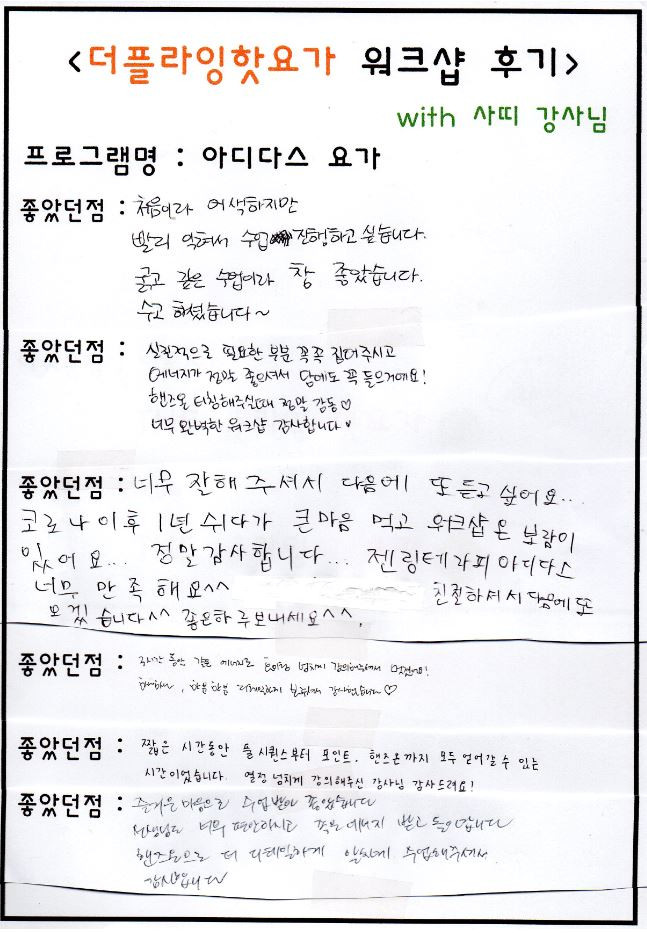 <더플라잉핫요가 워크샵 후기>
with 사띠 강사님
프로그램명 : 아디다스 요가
좋았던점 : 처음이라 어색하지만
빨리 익혀서 수업 진행하고 싶습니다.
굵고 깊은 수업이라 참 좋았습니다.
수고 하셨습니다~
좋았던점 : 실전적으로 필요한 부분 꼭꼭 집어주시고
에너지가 정말 좋으셔서 담에도 꼭 들으거에요!
핸즈온 터칭해주실때 정말 감동♡
너무 완벽한 워크샵 감사합니다♥
좋았던점 : 너무 잘해주셔서 다음에 또 듣고 싶어요...
코로나 이후 1년 쉬다가 큰마음 먹고 워크샵온 보람이
있어요... 정말감사합니다... 젠링테라피아디다스
너무 만족해요^^ 친절하셔서 다음에또
오겠습니다^^ 좋은하루보내세요^^.
좋았던점 : 3시간 동안 같은 에너지로 넘치게 강의해주셔서 멋졌어요!
한분한분 디테일하게 봐주셔서 감사했습니다♡
좋았던점 : 짧은 시간동안 풀시퀀스부터 포인트, 핸즈온까지 모두 얻어갈 수 있는
시간이었습니다. 열정 넘치게 강의해주신 강사님 감사드려요!
좋았던점 : 즐거운 마음으로 수업받아 좋았습니다
선생님도 너무 편안하시고 좋은 에너지 받고 돌아갑니다
핸즈온으로 더 디테일하게 알차게 수업해주셔서
감사합니다